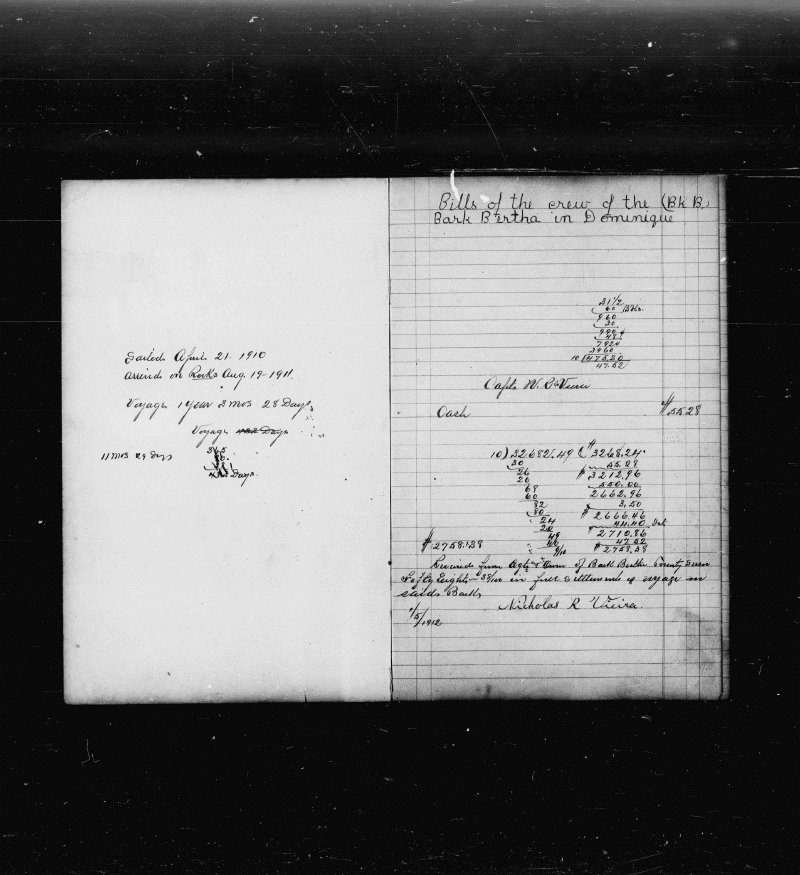 Sailed April 21. 1910
arrived on Rocks Aug. 19-1911.
Voyage 1 year 3 mos 28 Days
Voyage Days
11 mos 29 days
345
Days.
Bills of the crew of the (Bk B.)
Bark Bertha in Dominique
31 1/2
60 Bbls.
960
30
990
48
7920
3960
10 47520
47.52
Capt. N. R. Vieira
Cash $55.28
10) 32682.49 ( $3268.24
30 55.28
26 $3212.96
20 550.00
68 2662.96
60 3.50
82 $2666.46
80 44.40
24 $2710.86
20 47.52
49 $2758.38
$2758.38
Received from Agts & Owners of Bark Bertha Twenty Seven
Fifty Eight 38/100 in full settlement of voyage in
said Bark
Nicholas R Vieira.
1/5/1912